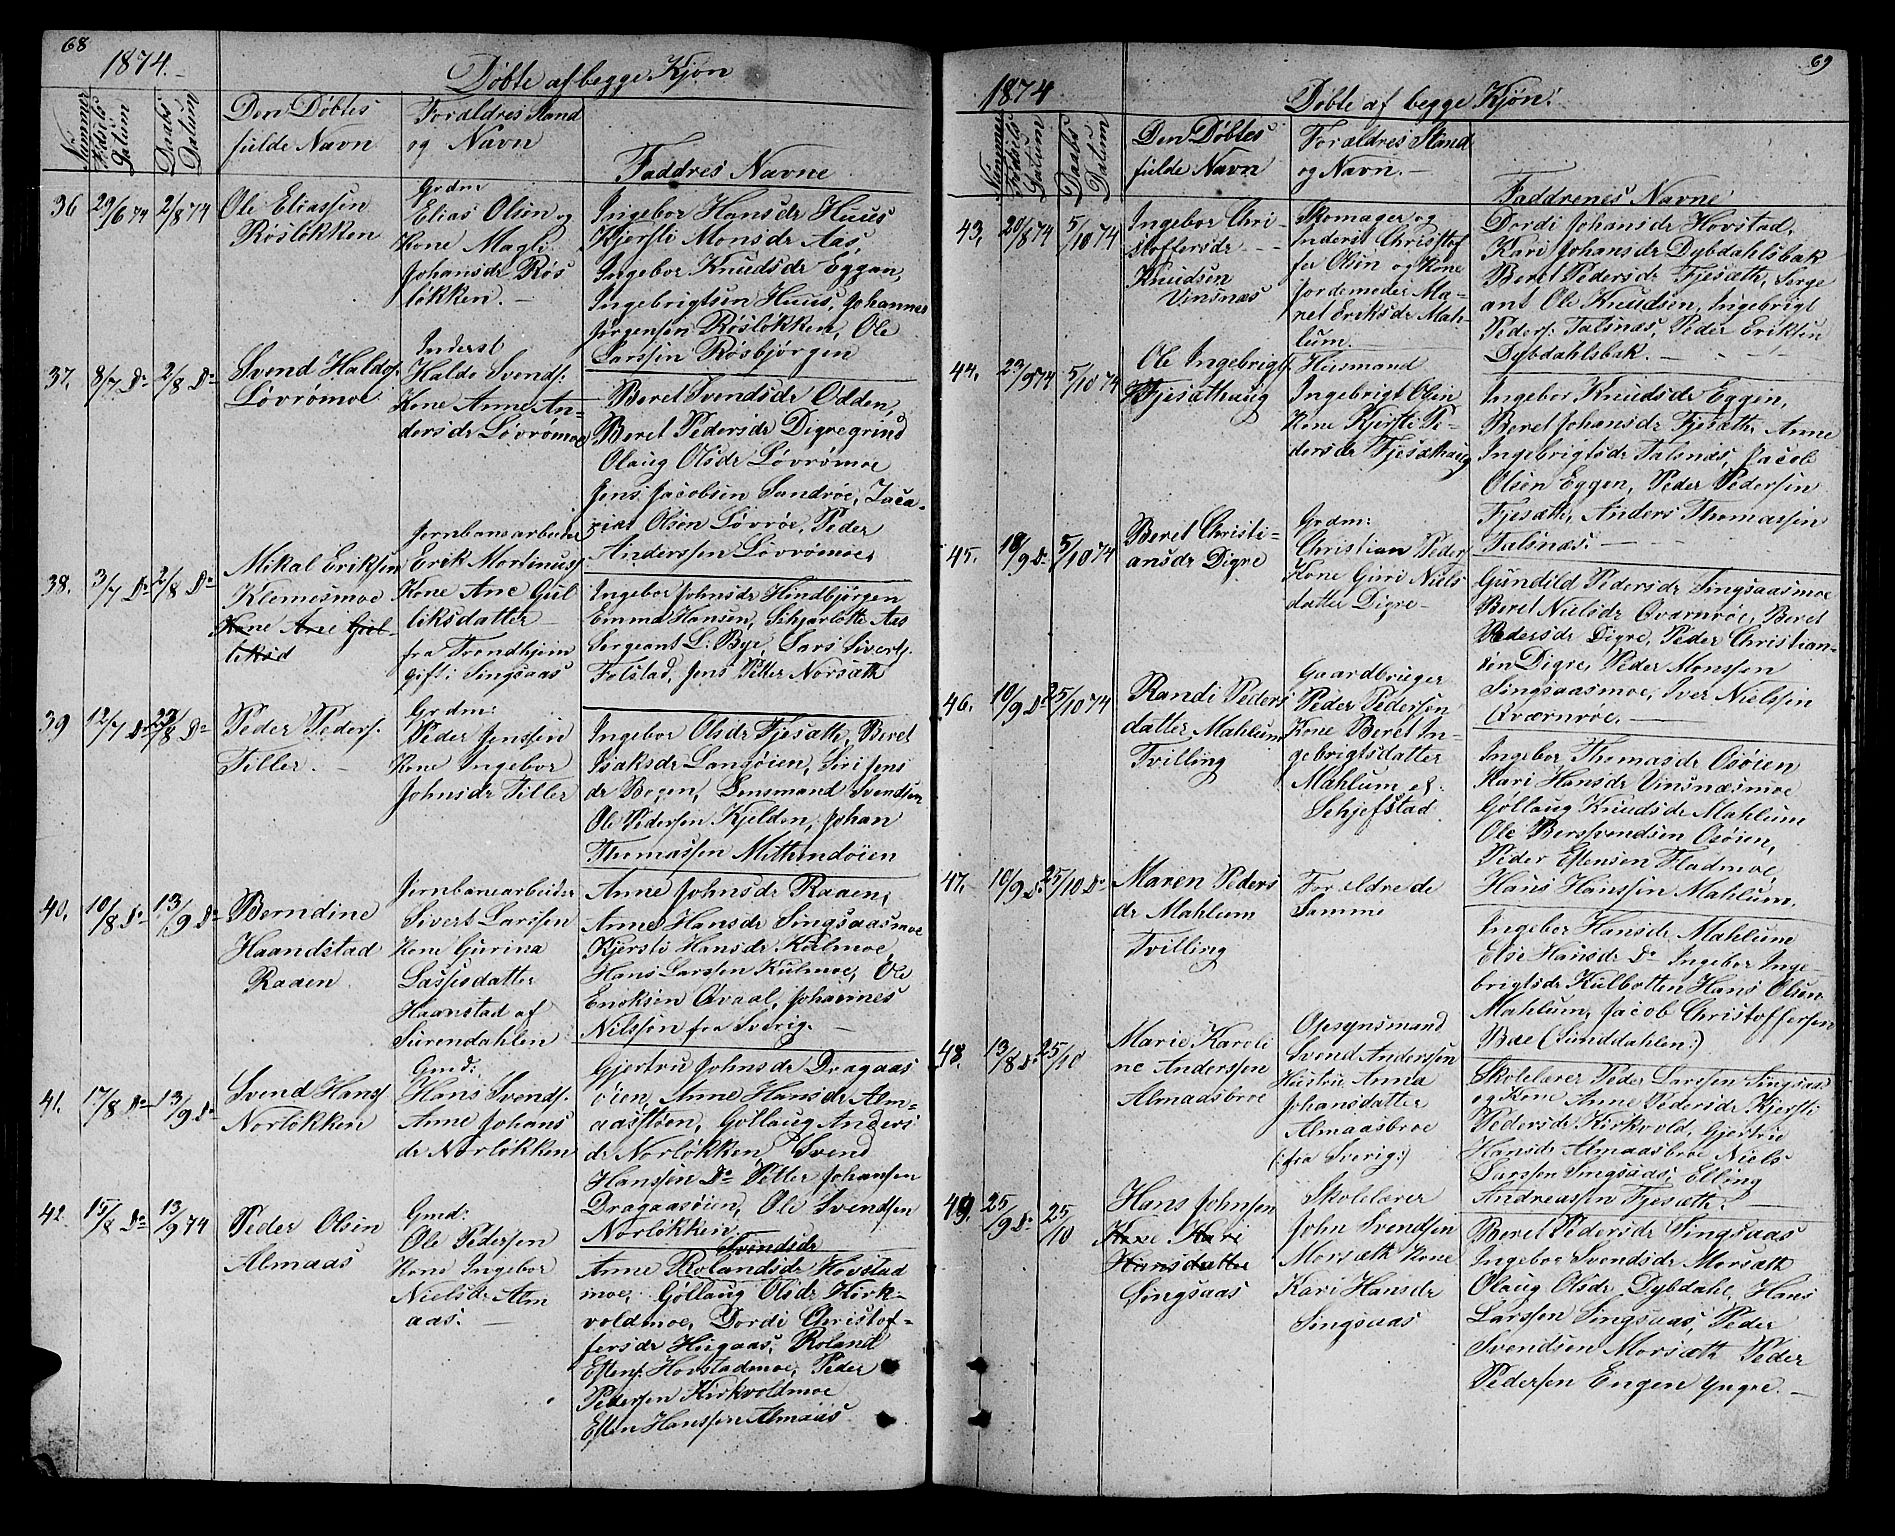 68
1874.
Döbte af begge Kjön
Nummer
Fødsels Datum
Daabs Datum
Den Döbtes
fulde Navn
Foraldres Stand
og Navn
Faddres Navne
36 29/6 74 2/8 74
Ole Eliassen
Röslökken
Grdm
Elias Olsen og
Kone Magli
Johansdr Rös
lökken.
Ingebor Hansdr Huus
Kjersti Monsdr Aas,
Ingebor Knudsdr Eggan,
Ingebrigtsen Huus, Johannes
Jörgensen Röslökken, Ole
Larssen Rösbjörgen
37. 8/7 Do 2/8 Do
Svend Haldos
Lövrömoe
Inderst
Haldo Svends.
Kone Anne An-
dersdr Lövrömoe
Beret Svendsdr Odden,
Beret Pedersdr Digregrind
Olaug Olsdr Lövrömoe
Jens Jacobsen Sandröe, Zaca-
rias Olsen Lövröe, Peder
Anderssen Lövrömoe,
38. 3/7 Do 2/8 Do
Mikal Eriksen
Klemesmoe
Kone Ane Gul-
liksd
Jernbanearbeider
Erik Mortinus
Kone Ane Gul
liksdatter
fra Trondhjem
gift i Singsaas
Ingebor Johnsdr Hindbjörgen
Emma Hansen, Schjarlotte Aas
Sergeant L. Bye, Lars Siverts.
Folstad, Jens Petter Norsæth
39 12/7 Do 27/8 Do
Peder Peders.
Tiller.
Grdm:
Peder Jenssen
Kone Ingebor
Johnsdr Tiller
Ingebor Olsdr Fjesæth, Beret
Isaksdr Langöien, Siri Jens
dr Bogen, Lensmand Svendsen
Ole Pedersen Kjelden, Johan
Thomassen Mithundöien
40. 10/8 Do 13/9 Do
Berndine
Haandstad
Raaen
Jernbanearbeider
Sivert Larssen
Kone Gurina
Lassesdatter
Haanstad af
Surendahlen
Anne Johnsdr Raaen,
Anne Hansdr Singsaasmoe
Kjersti Hansdr Kulmoe
Hans Larssen Kulmoe, Ole
Enoksen Qvaal, Johannes
Nilssen fra Sverig.
41. 17/8 Do 13/9 Do
Svend Hans
Norlökken
Gmd:
Hans Svends.
Anne Johans
dr Norlökken
Gjertru Johnsdr Dragaas
öien, Anne Hansdr Alm-
aasstöen, Göllaug Anders
dr Norlökken, Svend
Hanssen Do Petter Johansen
Dragaasöien, Ole Svendsen
Norlökken
42. 15/8 Do 13/9 74
Peder Olsen
Almaas
Gmd:
Ole Pedersen
Kone Ingebor
Nielsdr Alm
aas.
Svendsdr
Anne Rolandsdr Hovstad
moe, Göllaug Olsdr Kirk-
voldmoe, Dordi Christof-
fersdr Hugaas, Roland
Estens. Hovstadmoe, Peder
Pedersen Kirkvoldmoe
Esten Hanssen Almaas.
69
1874
Döbte af begge Kjön.
Nummer
Fødsels Datum
Daabs Datum
Den Döbtes
fulde Navn
Foraldres Stand
og Navn.
Faddrenes Navne
43. 20/8 74 5/10 74
Ingebor Chri-
stoffersdr
Knudsen
Vinsnas
Skomager og
Inderst Christof
fer Olsen og Kone
Jordemoder Ma-
ret Eriksdr Mah-
lum.
Dordi Johansdr Hovstad,
Kari Johansdr Dybdahlsbak
Beret Pedersdr Fjesæth, Serge
ant Ole Knudsen, Ingebrigt
Peders. Talsnas, Peder Eriksen
Dybdahlsbak.
44. 29/9 74 5/10 74
Ole Ingebrigts
Fjesæthaug
Huusmand
Ingebrigt Olsen
Kone Kjersti Pe-
dersdr Fjesæthaug
Ingebor Knudsdr Eggen,
Beret Johansdr Fjesæth, Anne
Ingebrigtsdr Talsnas, Jacob
Olsen Eggen, Peder Pedersen
Fjesæth, Anders Thomassen
Talsnas.
45. 18/9 Do 5/10 74
Beret Christi-
ansdr Digre
Grdm:
Christian Peder
Kone Guri Niels
datter Digre
Gundild Pedersdr Singsaasmoe
Beret Nielsdr Qvarnröe, Beret
Pedersdr Digre, Peder Christian-
sen Digre, Peder Monssen
Singsaasmoe, Iver Nielssen
Qværnröe.
46. 10/9 Do 25/10 74
Randi Peders
datter Mahlum
Tvilling
Gaardbruger
Peder Pedersen
Kone Beret In-
gebrigtsdatter
Mahlum af
Schjefstad.
Ingebor Thomasdr Osöien
Kari Hansdr Vinsnæsmoe
Göllaug Knudsdr Mahlum
Ole Bersvendsen Osöien,
Peder Estensen Fladmoe,
Hans Hanssen Mahlum.
47. 10/9 Do 25/10 Do
Maren Peders
dr Mahlum
Tvilling
Foraldre de
Samme
Ingebor Hansdr Mahlum
Else Hansdr Do Ingebor Inge-
brigtsdr Kulbotten Hans Olsen
Mahlum, Jacob Christoffersen
Boe (Sunddahlen:)
48. 13/8 Do 25/10
Marie Karoli
ne Anderssen
Almaasbroe
Opsynsmand
Svend Anderssen
Hustru Anna
Johansdatter
Almaasbroe
(:fra Sverig:)
Skolelærer Peder Larssen Singsaas
og Kone Anne Pedersdr Kjersti
Pedersdr Kirkvold, Gjertru
Hansdr Almaasbroe Niels
Larssen Singsaas, Elling
Andreassen Fjesæth.
49. 25/9 Do 25/10
Hans Johnsen
Kone Kari
Hansdatter
Singsaas
Skolelærer
John Svendsen
Morsæth Kone
Kari Hansdr
Singsaas
Beret Pedersdr Singsaas
Ingebor Svendsdr Morsæth
Olaug Olsdr Dybdahl, Hans
Larssen Singsaas, Peder
Svendsen Morsæth Peder
Pedersen Engen yngre.